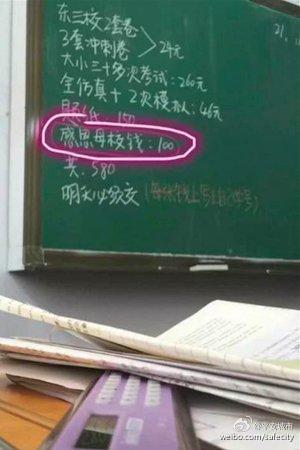 东三校2套卷
3套冲刺卷 > 24元
大小三十多次考试：260元
全仿真+2次模拟：46元
题纸：150
感恩母校钱：100
共：580
明天必须交（每张钱上写上自己学号）
21.
@平安城市
weibo.com/safecity